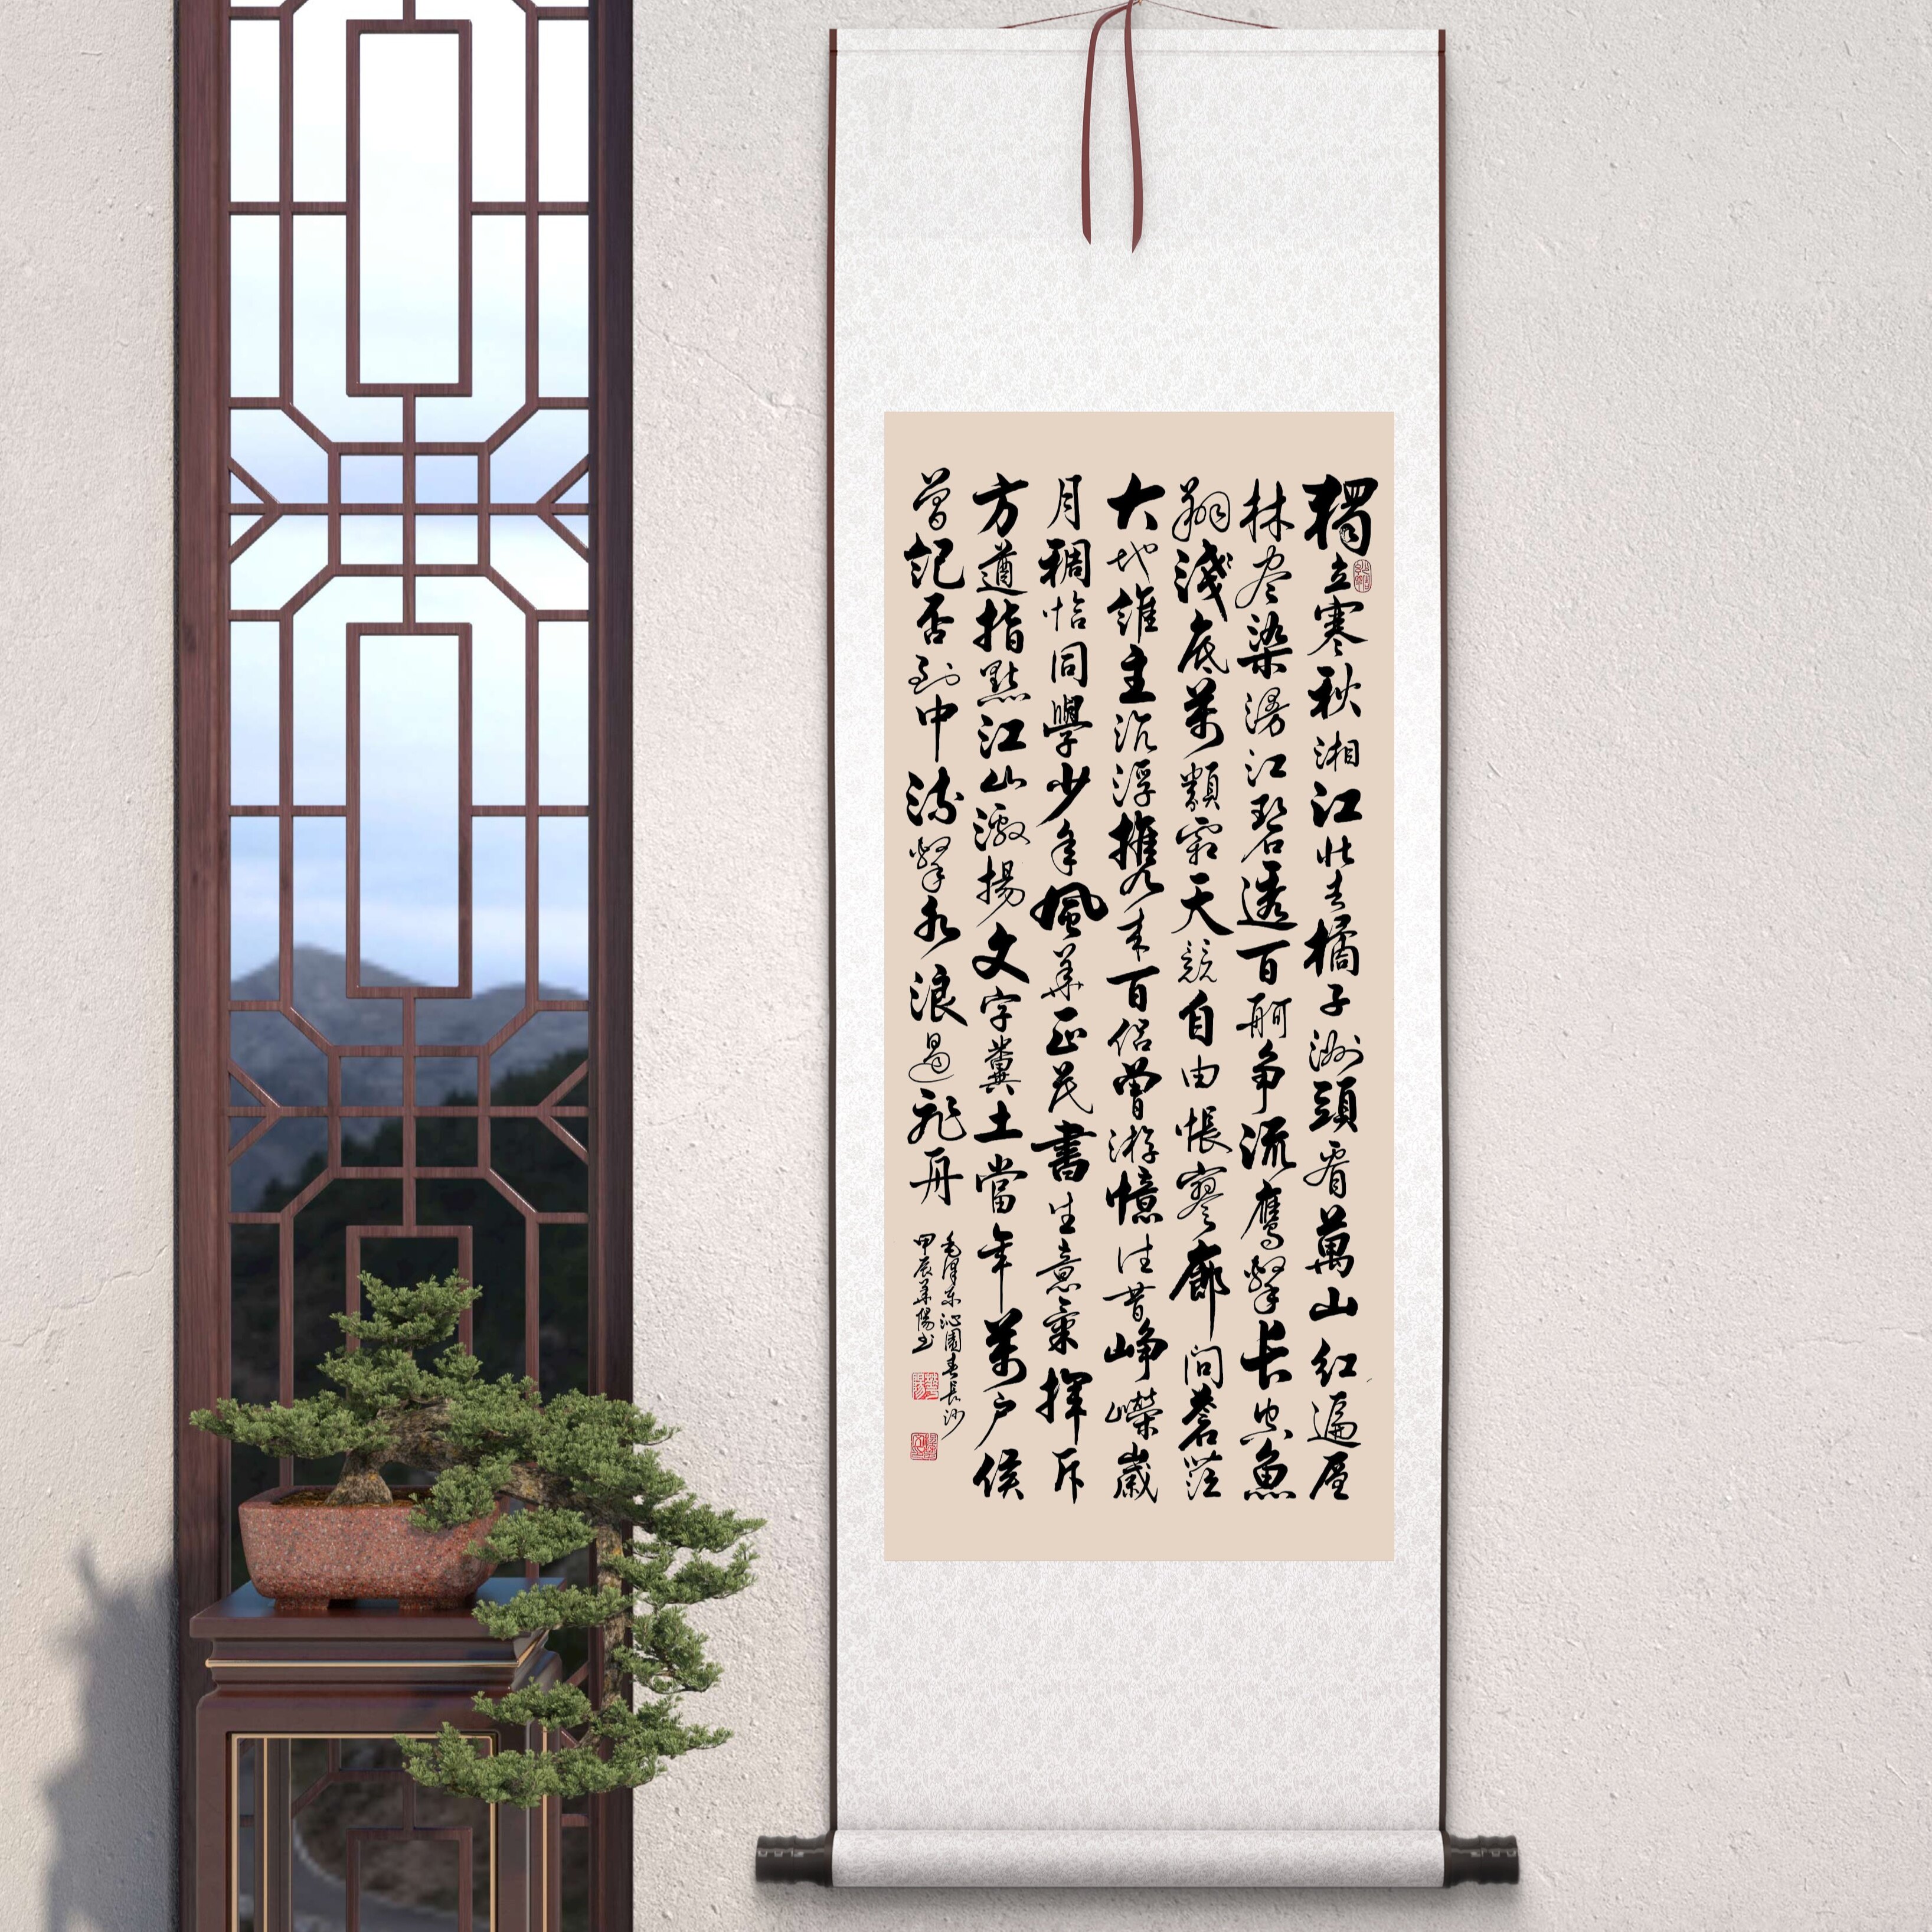 獨立寒秋湘江北去橘子洲頭看萬山紅遍层
林尽染漫江碧透百舸争流鹰擊长空魚
翔淺底萬類霜天競自由悵寥廓問蒼茫
大地誰主沉浮攜來百侣曾游憶往昔峥嶸歲
月稠恰同學少年風華正茂書生意氣揮斥
方遒指點江山激揚文字糞土當年萬户侯
曾記否到中流擊水浪遏飛舟
毛澤东沁園春長沙
甲辰華陽书
華陽